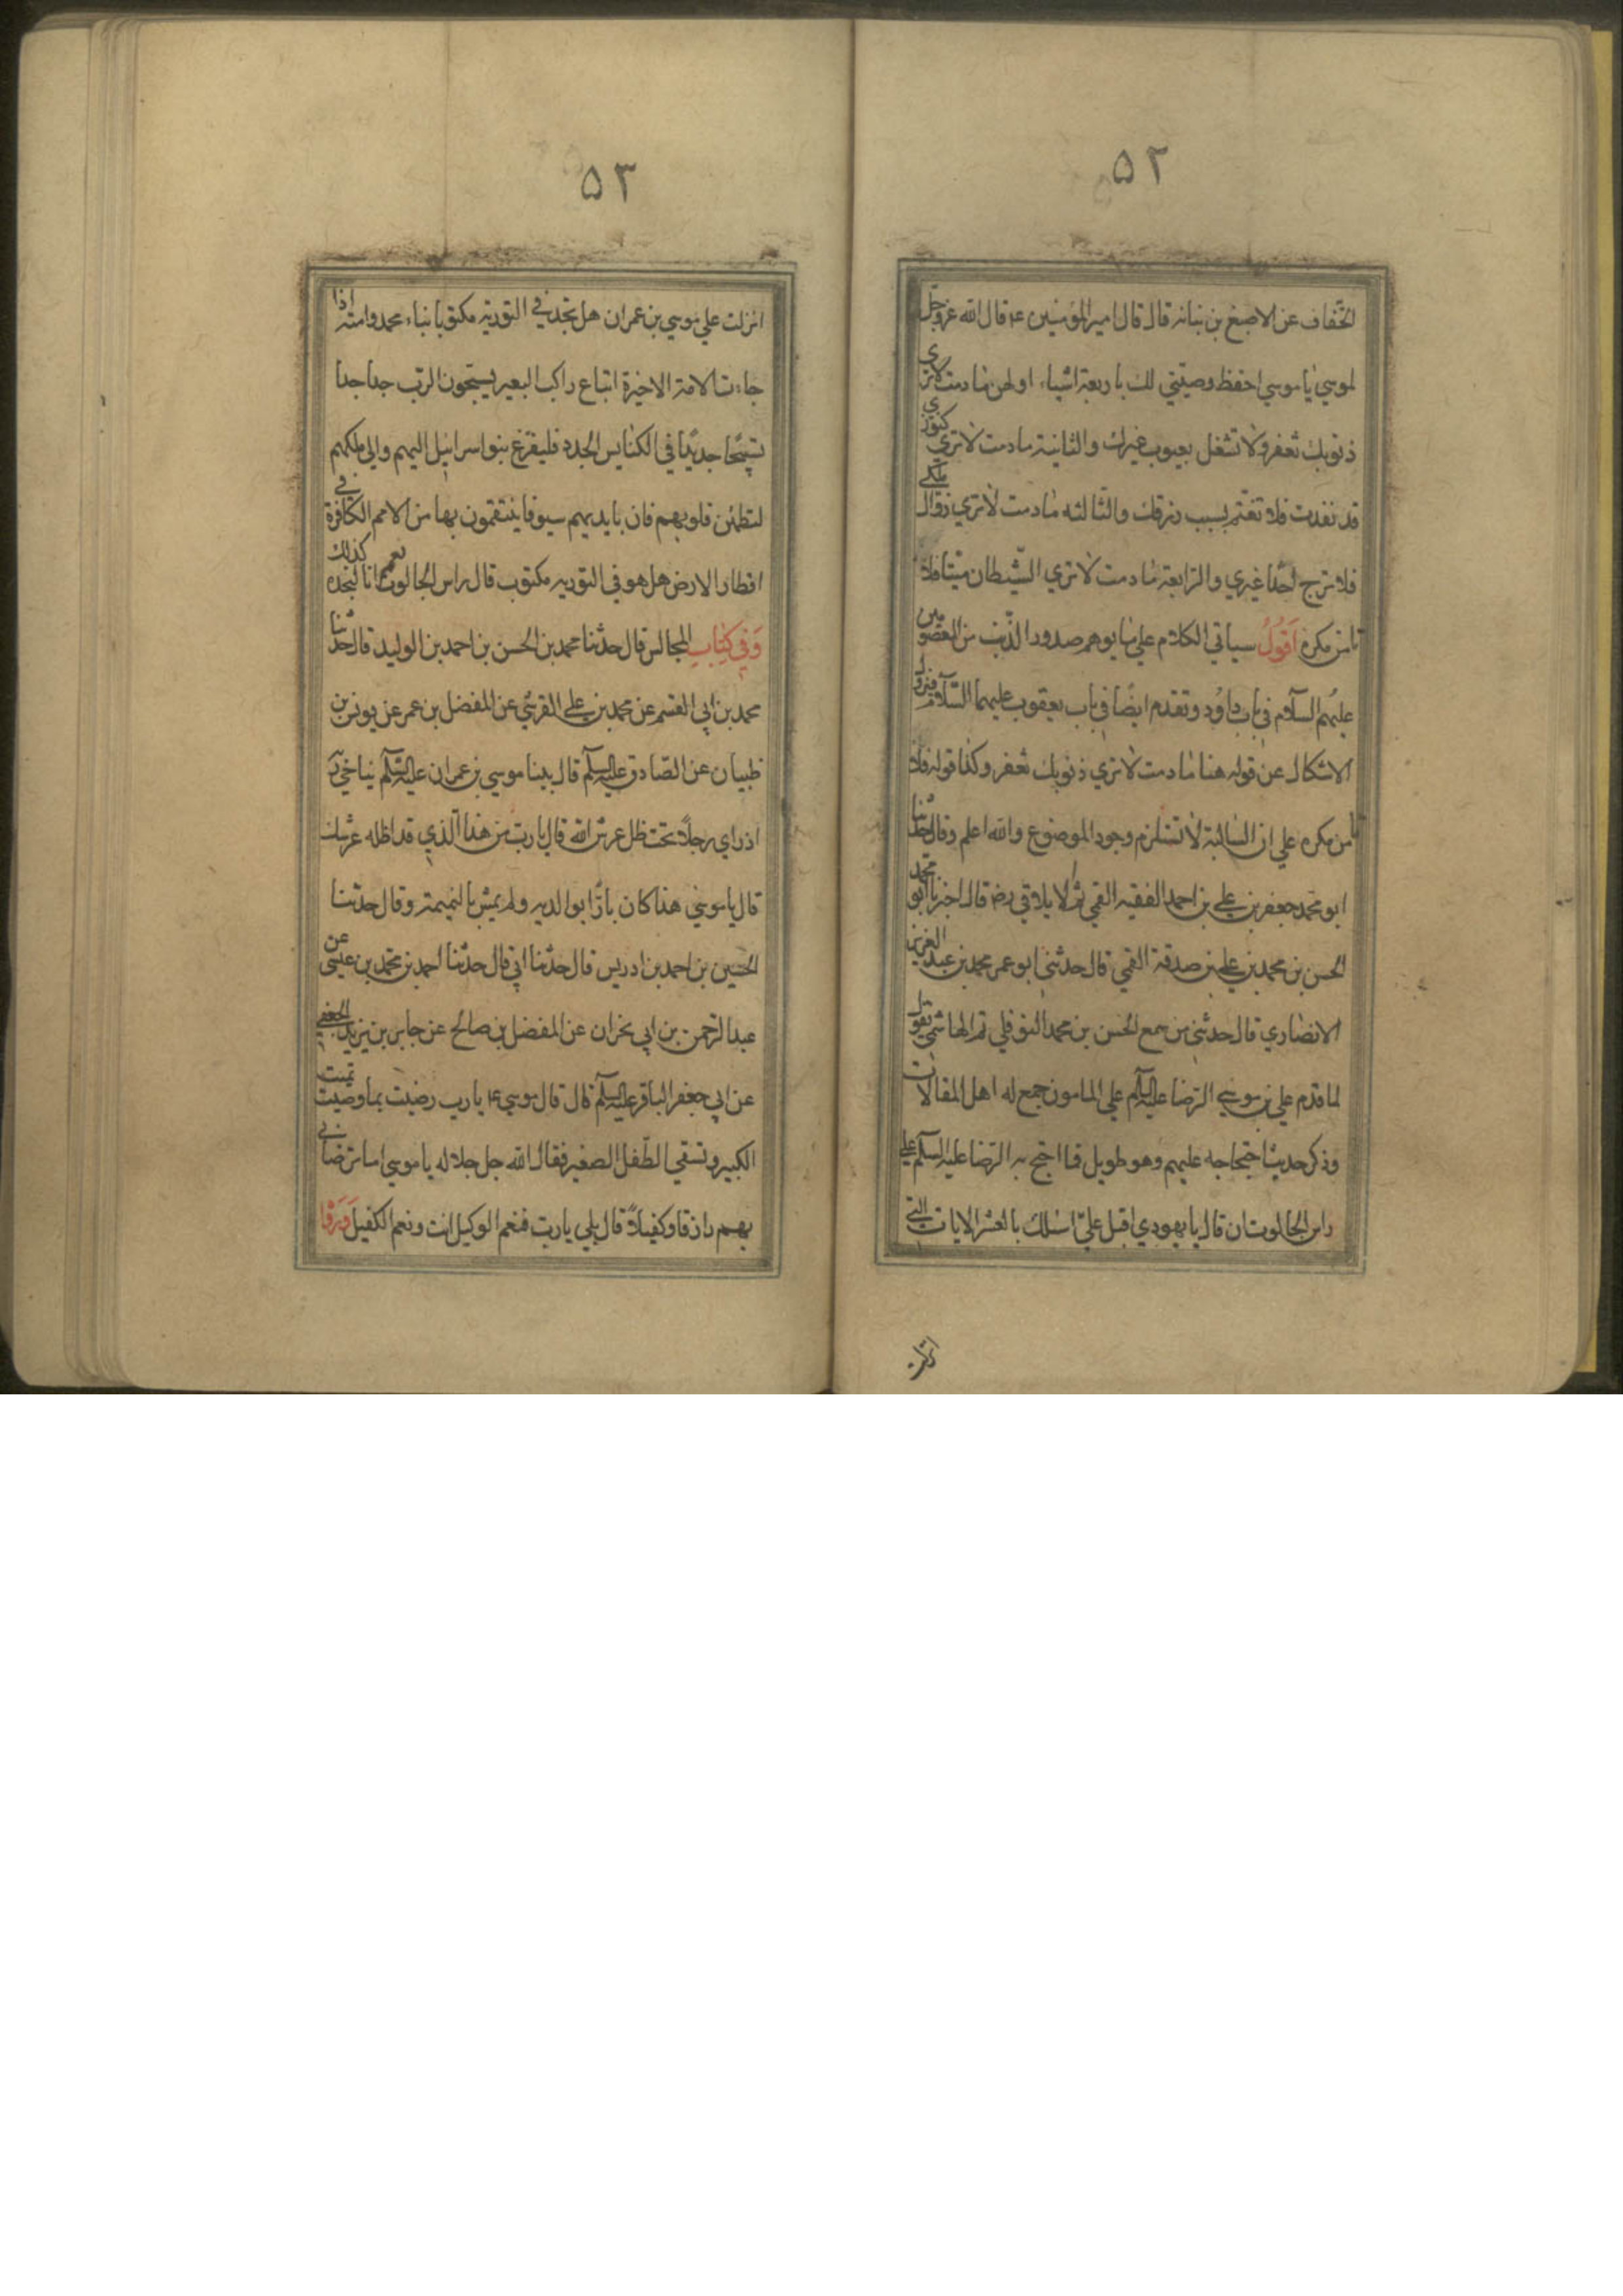 ۵۲
الخفاف عن الاصبغ بن نباته قال قال امير المؤمنين ع قال الله عزوجل
لموسي يا موسي احفظ وصيتي لك باربعة اشياء اولهن ما دمت لا تري
ذنوبك تغفر ولا تشغل بعيوب غيرك والثانية ما دمت لا تري كنوزي
قد نفدت فلا تغتم بسبب رزقك والثالثه ما دمت لا تري زوال ملكي
فلا ترج احدا غيري والرابعة ما دمت لا تري الشيطان ميتا فلا
تامن مكره اقول سياتي الكلام علي ما يوهم صدور الذنب من المعصومين
عليهم السلام في باب داود وتقدم ايضا في باب يعقوب عليهما السلام فيزول
الاشكال عن قوله هنا ما دمت لا تري ذنوبك تغفر وكذا قوله فلا
تامن مكره علي ان السالبة لا تستلزم وجود الموضوع والله اعلم وقال حدثنا
ابو محمد جعفر بن علي بن احمد الفقيه القمي ثم الايلاقي رض قال اخبرنا ابو محمد
الحسن بن محمد بن علي بن صدقة القمي قال حدثني ابو عمر محمد بن عبد العزيز
الانصاري قال حدثني من سمع الحسن بن محمد النوفلي ثم الهاشمي يقول
لما قدم علي بن موسي الرضا عليه السلام علي المامون جمع له اهل المقالات
وذكر حديث احتجاجه عليهم وهو طويل فما احتج به الرضا عليه السلام علي
راس الجالوت ان قال يا يهودي اقبل علي اسئلك بالعشر الايات التي
انزلت
۵۳
انزلت علي موسي بن عمران هل تجد في التورية مكتوبا نباء محمد وامته اذا
جاءت الامة الاخيرة اتباع راكب البعير يسبحون الرب جدا جدا
تسبيحا جديدا في الكنايس الجدد فليفزع بنو اسرائيل اليهم والي ملكهم
لتطمئن قلوبهم فان بايديهم سيوفا ينتقمون بها من الامم الكافرة في
اقطار الارض هل هو في التوريه مكتوب قال راس الجالوت نعم انا لنجده كذلك
وفي كتاب المجالس قال حدثنا محمد بن الحسن بن احمد بن الوليد قال حدثنا
محمد بن ابي القسم عن محمد بن علي القرشي عن المفضل بن عمر عن يونس بن
ظبيان عن الصادق عليه السلام قال بينا موسي بن عمران عليه السلم يناجي ربه
اذ راي رجلا تحت ظل عرش الله قال يا رب من هذا الذي قد اظله عرشك
قال يا موسي هذا كان بارا بوالديه ولم يمش بالنميمة وقال حدثنا
الحسين بن احمد بن ادريس قال حدثنا ابي قال حدثنا احمد بن محمد بن عيسي عن
عبد الرحمن بن ابي نجران عن المفضل بن صالح عن جابر بن يزيد الجعفي
عن ابي جعفر الباقر عليه السلم قال قال موسي ع يا رب رضيت بما قضيت تميت
الكبير وتبقي الطفل الصغير فقال الله جل جلاله يا موسي اما ترضاني
بهم رازقا وكفيلا قال بلي يا رب فنعم الوكيل انت ونعم الكفيل